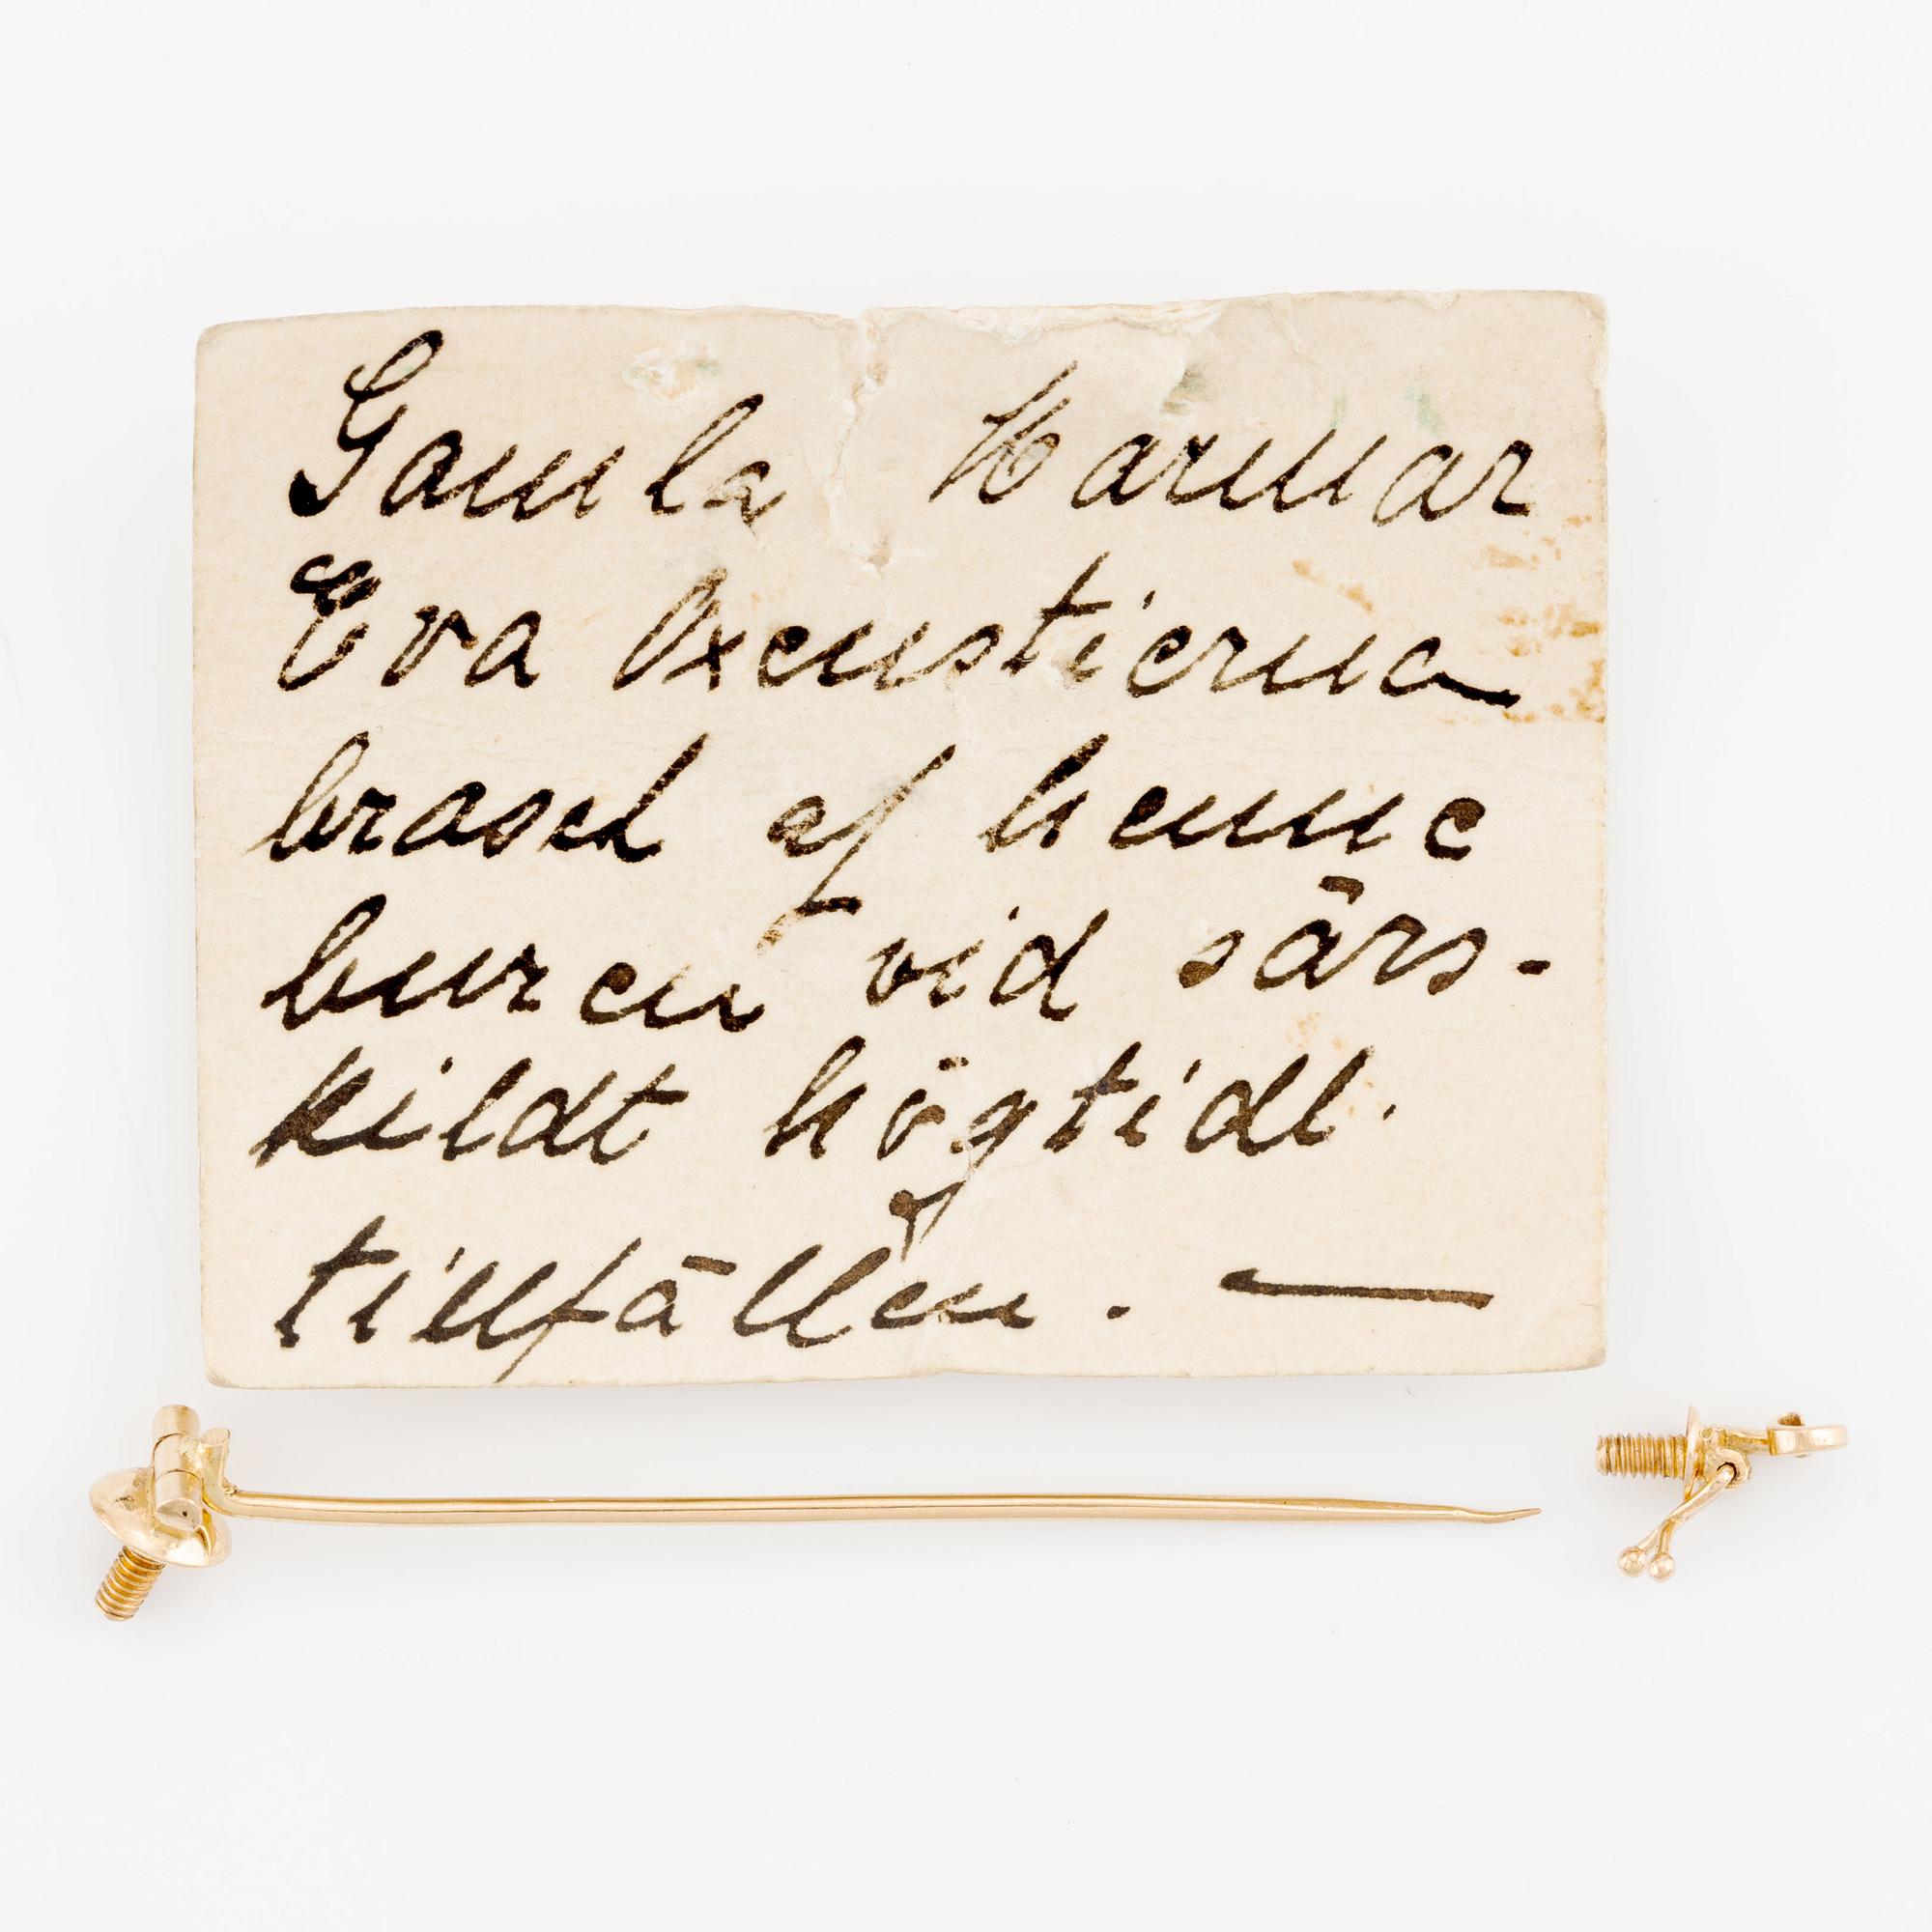 Gamla Mormor
Eva Oxenstierna
brosch af henne
buren vid särs-
kildt högtidl.
tillfällen. —